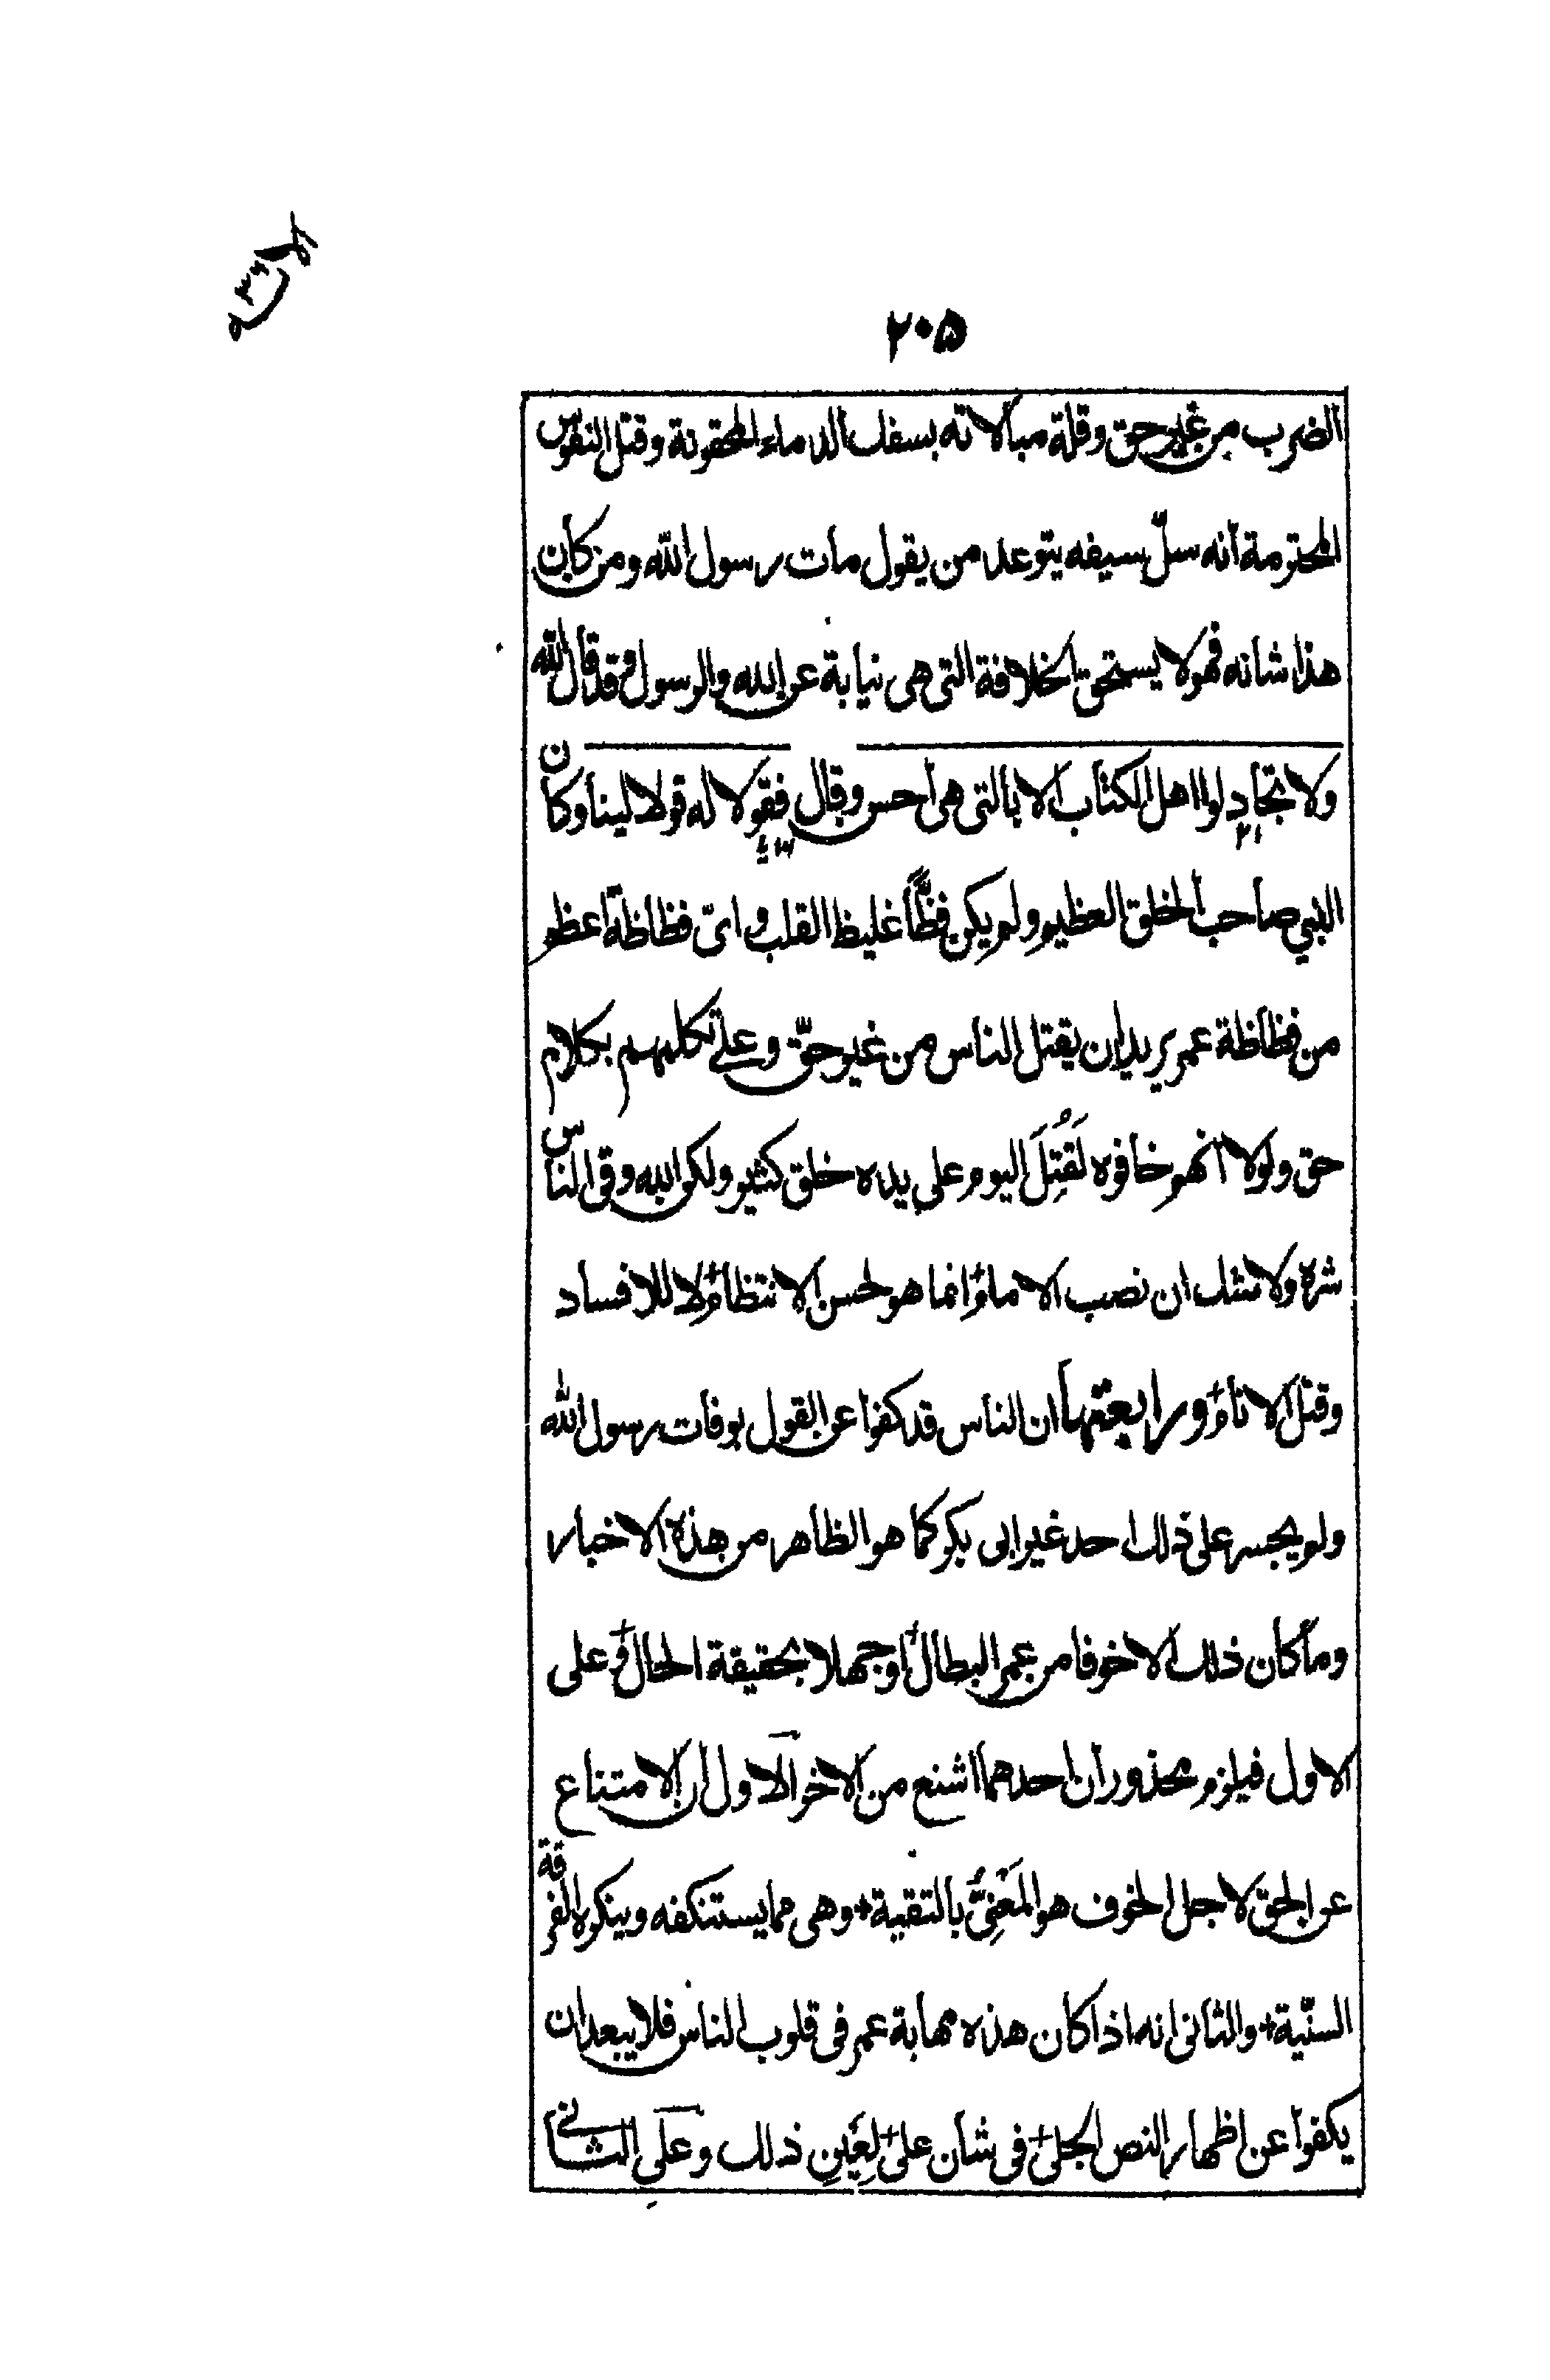 ٢٠٥
الضرب من غير حق وقلة مبالاته بسفك الدماء المحقونة وقتل النفوس
المحترمة انه سلّ سيفه يتوعد من يقول مات رسول الله ومن كان
هذا شانه فهو لا يستحق الخلافة التى هى نيابة عن الله والرسول وقد قال الله
ولا تجادلوا اهل الكتاب الا بالتى هى احسن وقال فقولا له قولا لينا وكان
٢١
النبي صاحب الخلق العظيم ولم يكن فظًّا غليظ القلب واىّ فظاظة اعظم
من فظاظة عمر يريد ان يقتل الناس من غير حقّ وعلى تكلمهم بكلام
حق ولولا انهم خافوه لَقُتِلَ اليوم على يده خلق كثير ولكن الله وقى الناس
شره ولا شك ان نصب الامام انما هو لحسن الانتظام لا للافساد
وقتل الانام ورابعتها ان الناس قد كفوا عن القول بوفات رسول الله
ولم يجسر على ذلك احد غير ابى بكر كما هو الظاهر من هذه الاخبار
وما كان ذلك الا خوفا من عمر البطال او جهلا بحقيقة الحال فعلى
الاول فيلزم محذوران احدهما اشنع من الاخر الاول ان الامتناع
عن الحق لاجل الخوف هو المَعْنِىُّ بالتقية وهى مما يستنكفه وينكره الفرقة
السنّية والثانى انه اذا كان هذه مهابة عمر فى قلوب الناس فلا يبعد ان
يكفوا عن اظهار النص الجلى فى شان على لِعَينِ ذلك وعلى الثانى